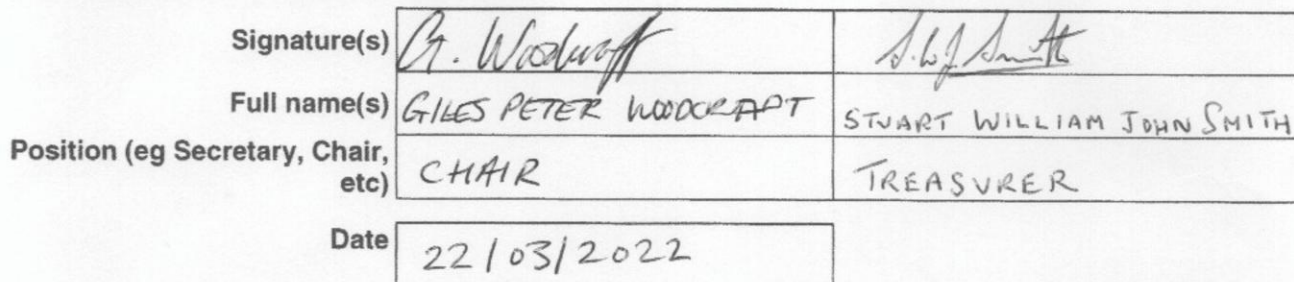 Signature(s) G. Woodcraft S.W.J Smith
Full name(s) GILES PETER WOODCRAFT STUART WILLIAM JOHN SMITH
Position (eg Secretary, Chair,
etc) CHAIR TREASURER
Date 22/03/2022